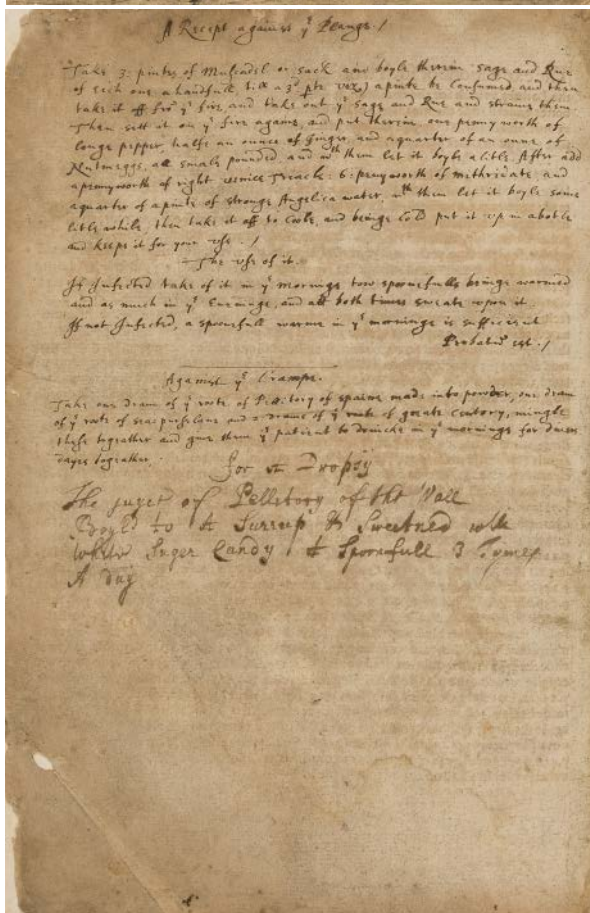 A Recept against yͤ Plauge. /
Take 3: pintes of Muscadel or sack and boyle therein sage and Rue
of each one a handfull till a 3ᵈ pte (vez) a pinte be Consumed, and then
take it off frõ yͤ fire and take out yͤ sage and Rue and straine them
Then sett it on yͤ fire againe, and put therein one penny worth of
longe pepper, halfe an ounce of Ginger, and a quarter of an ounc of
Nutmeggs, all smale pounded, and wᵗʰ them let it boyle a litle, After add
a penyworth of right venice Treacle: 6: penyworth of methridate, and
a quarter of a pinte of stronge Angelica water, wᵗʰ them let it boyle some
litle while, then take it off to Coole, and beinge Cold put it up in a botle
and keepe it for your use. /
The use of it.
If Infected take of it in yͤ morninge tow spoonefulls beinge warmed
and as much in yͤ Eveninge, and att both times sweate upon it.
If not Infected, a spoonefull warme in yͤ morninge is sufficient
Probatũ est. /
Against yͤ Crampe.
Take one dram of yͤ roote of Pellitory of spaine made into powder, one dram
of yͤ roote of and a drame of yͤ roote of greate Centory, mingle
these togeather and give them yͤ patient to drincke in yͤ mornings for
dayes togeather
for A Dropsy
The juyce of Pellitory of the Wall
Boyld to A Surrup & Sweetned with
White Suger Candy A Spoonfull 3 Tymes
A day